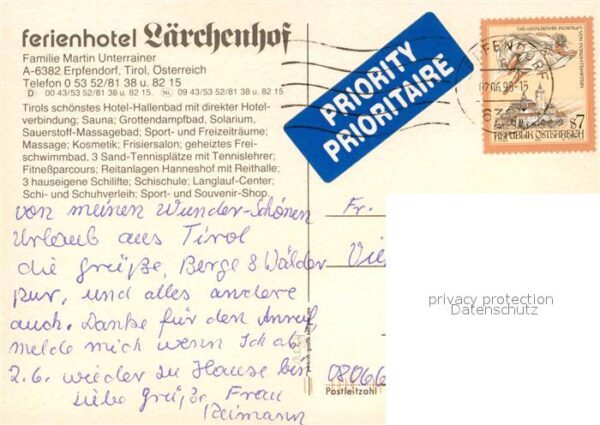 ferienhotel Lärchenhof
Familie Martin Unterrainer
A-6382 Erpfendorf, Tirol, Österreich
Telefon 0 53 52/81 38 u. 82 15
D 00 43/53 52/81 38 u. 82 15. NL 09 43/53 52/81 38 u. 82 15
Tirols schönstes Hotel-Hallenbad mit direkter Hotel-
verbindung; Sauna; Grottendampfbad, Solarium,
Sauerstoff-Massagebad; Sport- und Freizeiträume;
Massage; Kosmetik; Frisiersalon; geheiztes Frei-
schwimmbad, 3 Sand-Tennisplätze mit Tennislehrer;
Fitneßparcours; Reitanlagen Hanneshof mit Reithalle;
3 hauseigene Schilifte; Schischule; Langlauf-Center;
Schi- und Schuhverleih; Sport- und Souvenir-Shop.
von meinen Wunder-Schönen
Urlaub aus Tirol
die grüße, Berge & Wälder
pur, und alles andere
auch. Danke für den Anruf,
melde mich wenn Ich ab
2.6. wieder zu Hause bin
Liebe grüße, Frau
Reimann
PRIORITY
PRIORITAIRE
REPUBLIK ÖSTERREICH
S7
Fr.
Vie
0806
Postleitzahl
privacy protection
Datenschutz